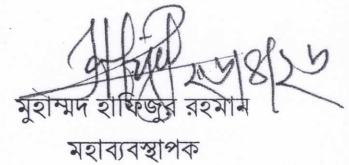 ২৬/৪/২৬
মুহাম্মদ হাফিজুর রহমান
মহাব্যবস্থাপক